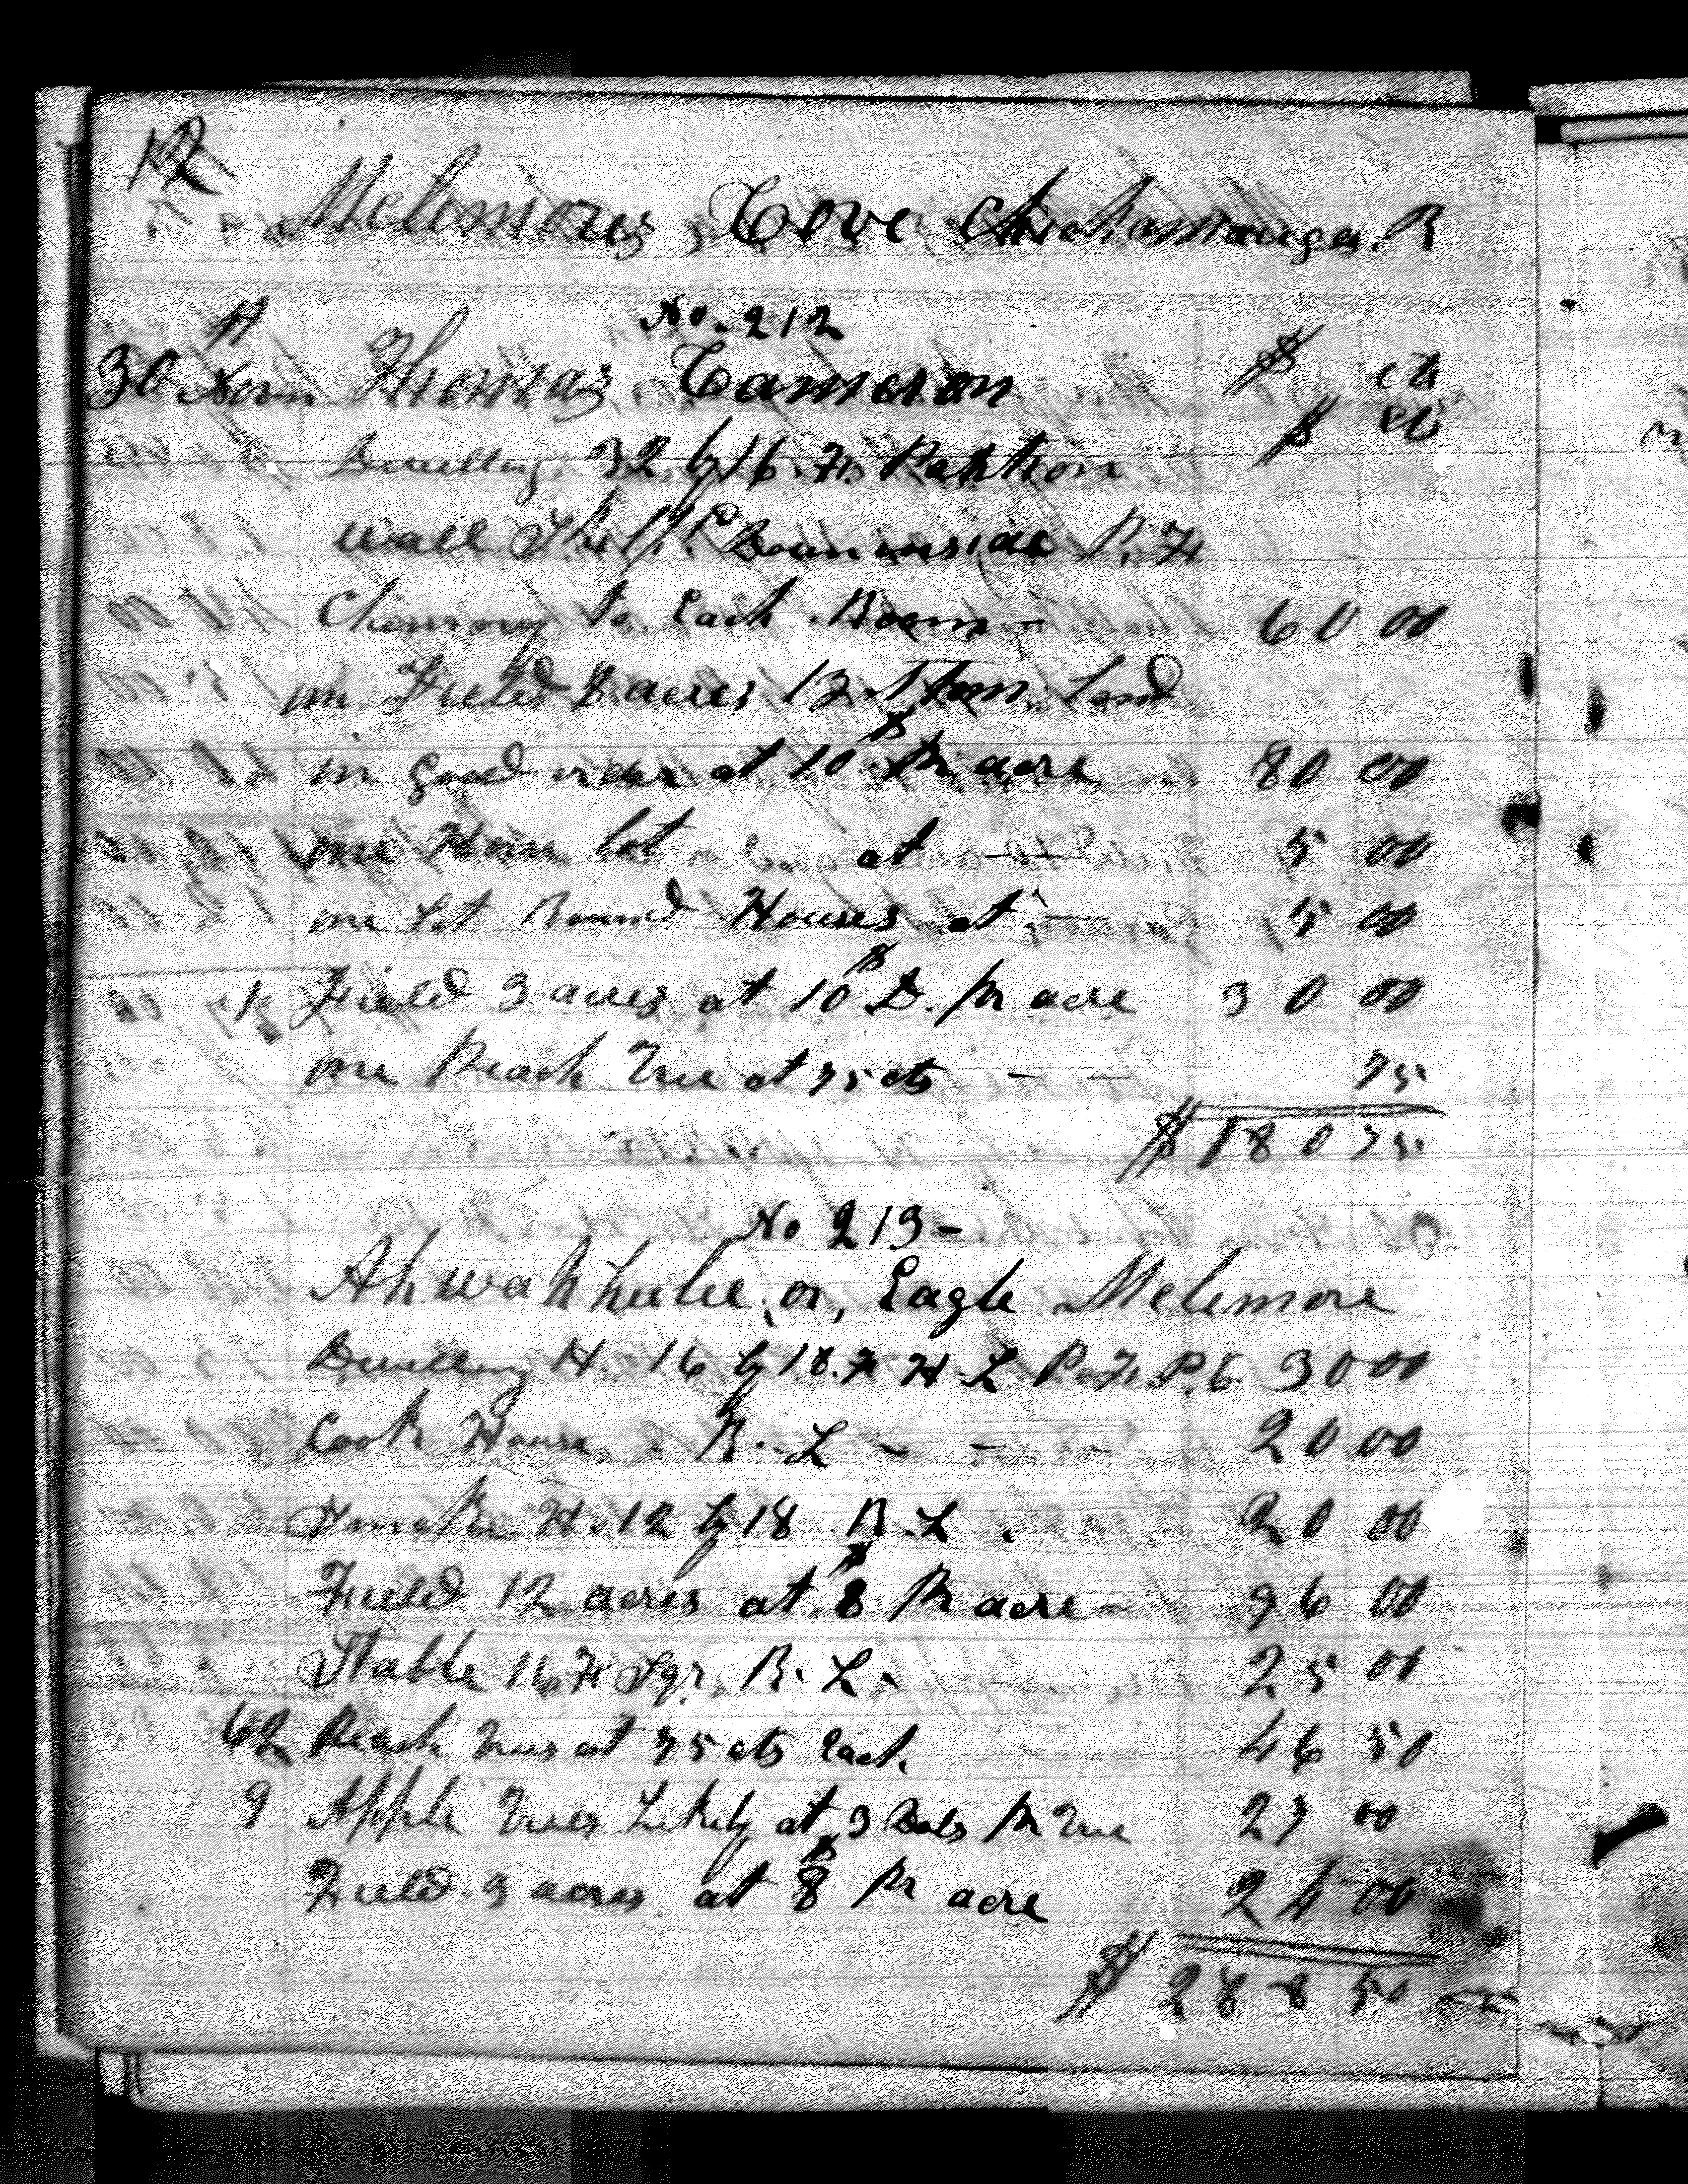 12
Mclemores Cove Chickamauga. R
No. 212
30 Novm Thomas Cameron $ cts
Dwelling 32 by 16 Ft. Partition $ cts
wall Down inside P. F.
Chimney to Each Room - 60 00
one Field 8 acres Land
in good order at 10 $ Pr acre 80 00
one Horse lot at - - 5 00
one lot Round Houses at - 5 00
1 Field 3 acres at 10 $ D. Pr acre 30 00
one Peach Tree at 75 cts - - 75
$ 180 75
No 213 -
Ah wah hulee, or, Eagle Mclemore
Dwelling H. 16 by 18. Ft H. L P. F. P. C. 30 00
Cook House - R. L - - - 20 00
Smoke H. 12 by 18 R. L. 20 00
Field 12 acres at $ 8 Pr acre - 96 00
Stable 16 Ft Sqr. R. L. - - 25 00
62 Peach Trees at 75 cts Each 46 50
9 Apple Trees Likely at 3 Dols Pr Tree 27 00
Field 3 acres at $ 8 Pr acre 24 00
$ 288 50